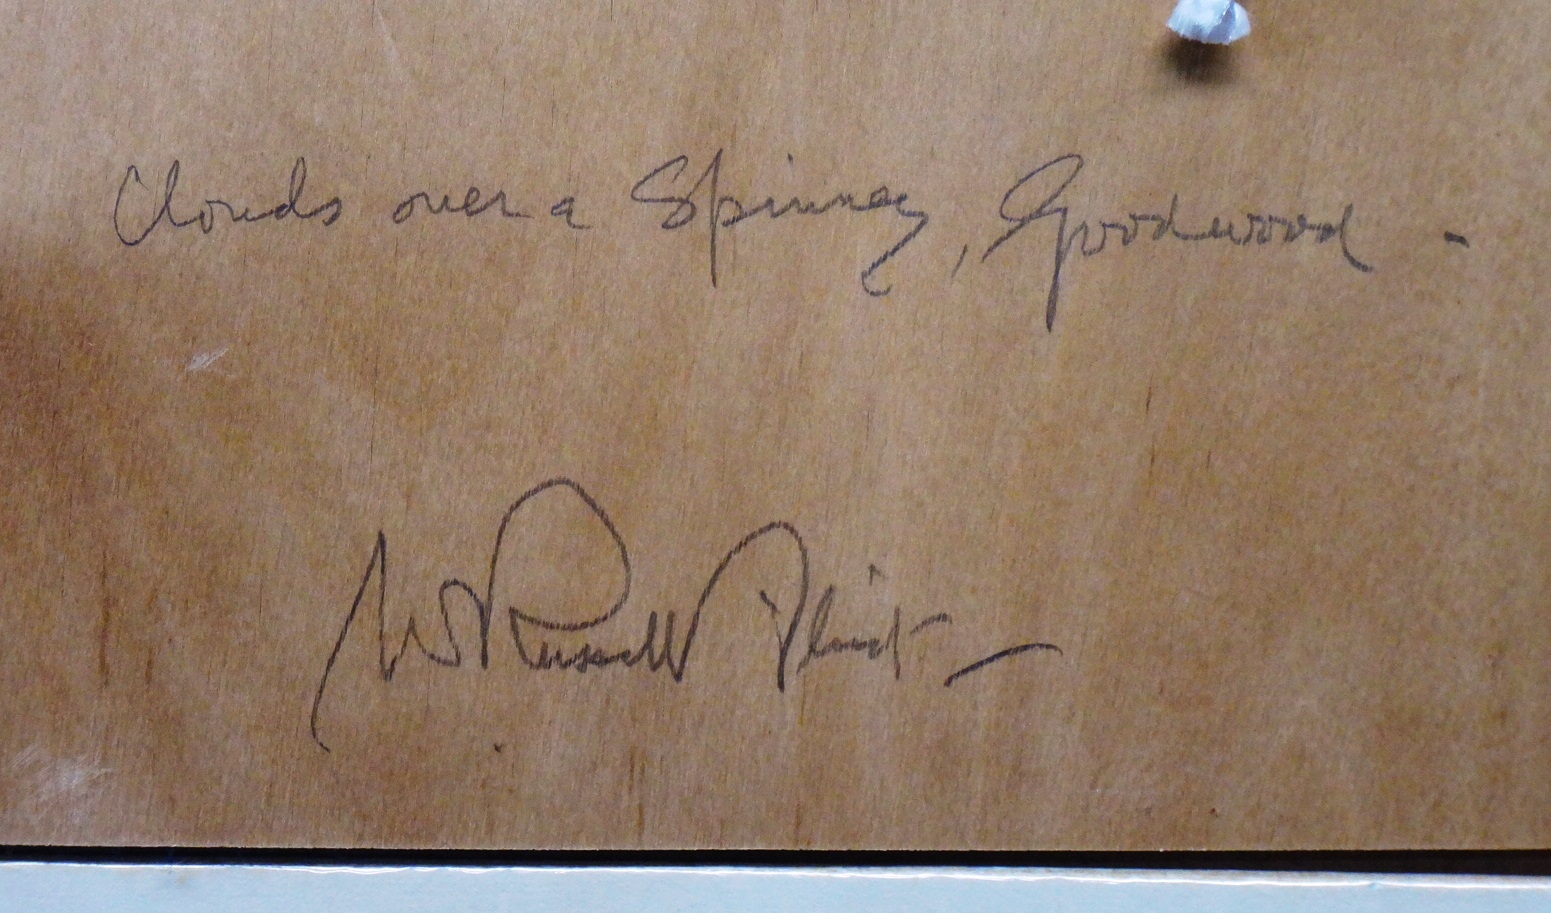 Clouds over a Spinney, Goodwood -
W Russell Flint -